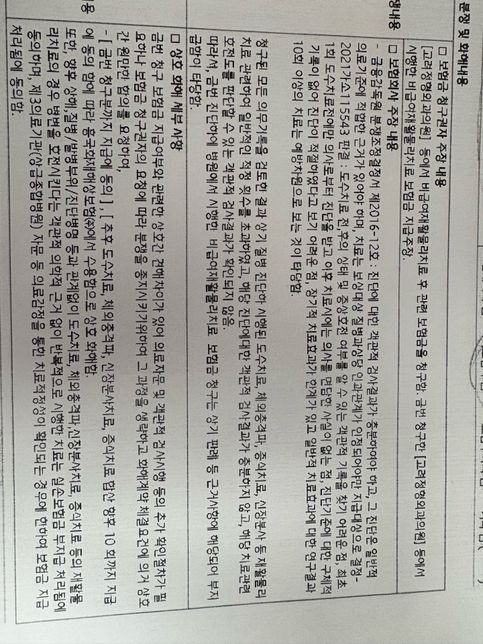 분쟁 및 화해내용
쟁내용
□ 보험금 청구권자 주장 내용
[고려정형외과의원] 등에서 비급여재활물리치료 후 관련 보험금을 청구함. 금번 청구한 [고려정형외과의원] 등에서
시행한 비급여재활물리치료 보험금 지급주장.
□ 보험회사 주장 내용
- 금융감독원 분쟁조정결정서 제2016-12호 : 진단에 대한 객관적 검사결과가 충분하여야 하고, 그 진단은 일반적
의료기준에 적합한 근거가 있어야 하며, 치료는 보상대상 질병과 상당 인과관계가 인정되어야만 지급대상으로 결정-
2021가소115543 판결 : 도수치료 전후의 상태 및 증상호전 여부를 알 수 있는 객관적 기록을 찾기 어려운 점, 최초
1회 도수치료전에만 의사로부터 진단을 받고 이후 치료시에는 의사를 면담한 사실이 없는 점, 진단기준에 대한 구체적
기록이 없어 진단이 적절하였다고 보기 어려운 점, 장기적 치료효과가 한계가 있고 일반적 치료효과에 대한 연구결과
10회 이상의 치료는 예방차원으로 보는 것이 타당함.
청구된 모든 의무기록을 검토한 결과 상기 질병 진단하 시행된 도수치료, 체외충격파, 증식치료, 신장분사 등 재활물리
치료 관련하여 일반적인 적정 횟수를 초과하였고, 해당 진단에대한 객관적 검사결과가 충분하지 않고, 해당 치료관련
호전도를 판단할 수 있는 객관적 검사결과가 확인되지 않음
따라서 금번 진단하에 병원에서 시행한 비급여재활물리치료 보험금 청구는 상기 판례 등 근거사항에 해당되어 부지
급함이 타당함.
용
□ 상호 화해 세부 사항
금번 청구 보험금 지급여부와 관련한 상호간 견해차이가 있어 의료자문 및 객관적 검사시행 등의 추가 확인절차가 필
요하나 보험금 청구권자의 요청에 따라 분쟁을 종지시키기위하여 그 과정을 생략하고 화해계약 체결요건에 의거 상호
간 원만한 합의를 요청하여,
- [ 금번 청구분까지 지급에 동의 ] , [ 추후 도수치료, 체외충격파, 신장분사치료, 증식치료 합산 향후 10 회까지 지급
에 동의 함에 따라 흥국화재해상보험㈜에서 수용함으로 상호 화해함.
또한, 향후 상해 질병 (발병부위, 진단병명 등)과 관계없이 도수치료, 체외충격파,신장분사치료, 증식치료 등의 재활물
리치료의 경우 병변을 호전시킨다는 객관적 의학적 근거 없이 반복적으로 시행한 치료는 실손보험금 부지급 처리됨에
동의하며, 제3의료기관(상급종합병원) 자문 등 의료감정을 통한 치료적정성이 확인되는 경우에 한하여 보험금 지급
처리됨에 동의함.